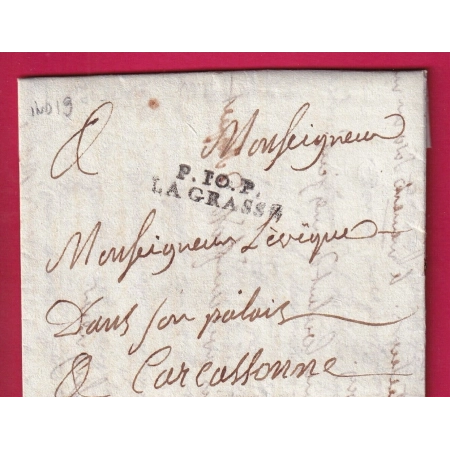 IND 19
A Monseigneur
P.10.P.
LAGRASSE
Monseigneur L'évêque
Dans son palais
A Carcassonne